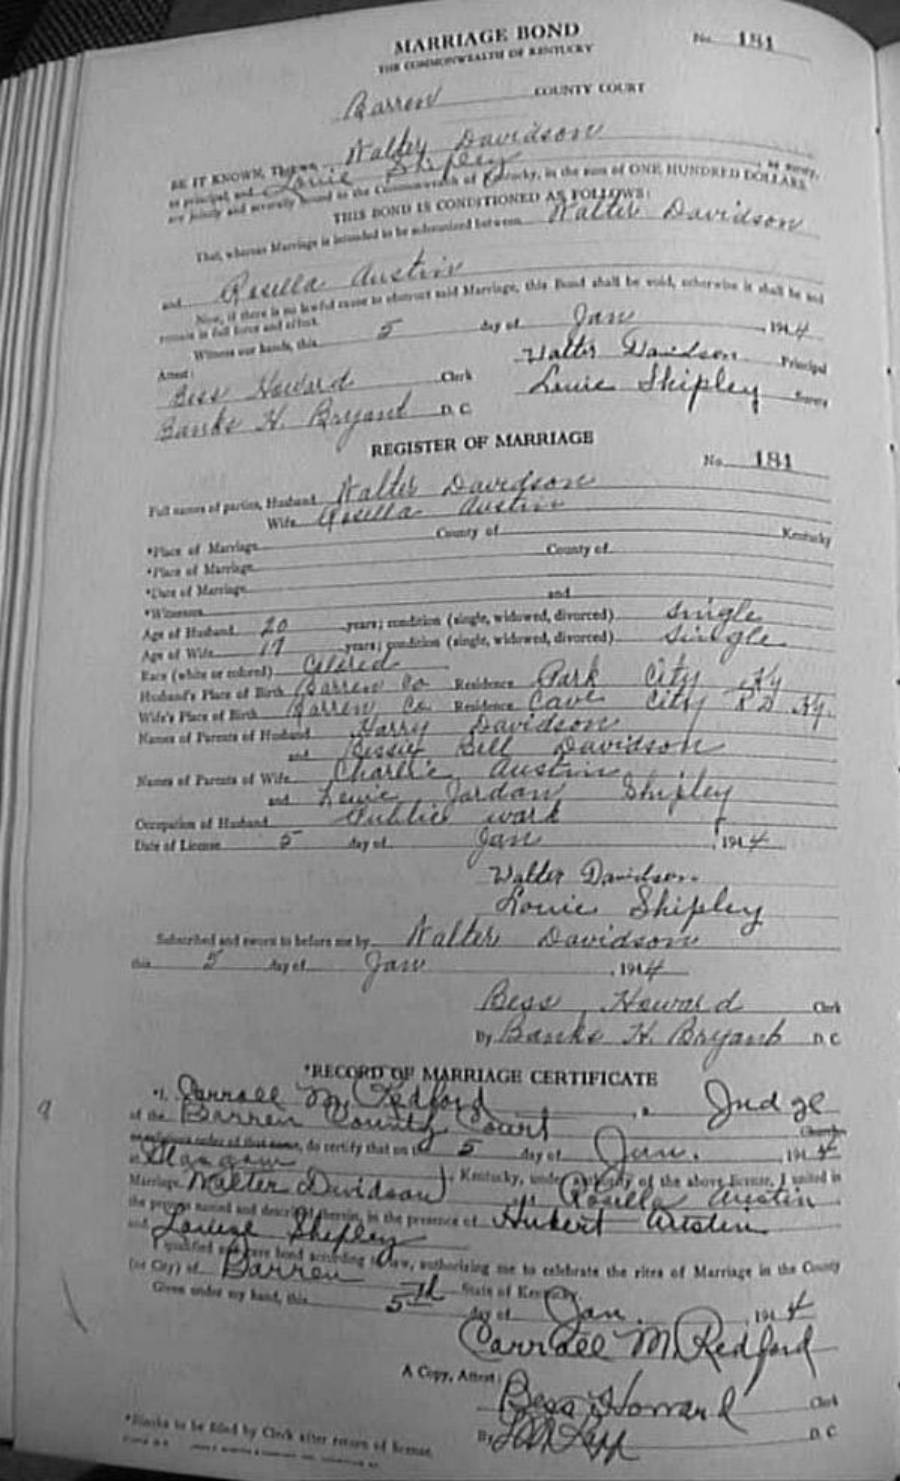 MARRIAGE BOND
No. 181
THE COMMONWEALTH OF KENTUCKY
Barren COUNTY COURT
BE IT KNOWN, That we, Walter Davidson
as principal, and Louie Shipley, as surety,
are jointly and severally bound to the Commonwealth of Kentucky, in the sum of ONE HUNDRED DOLLARS.
THIS BOND IS CONDITIONED AS FOLLOWS:
That, whereas Marriage is intended to be solemnized between Walter Davidson
and Rosella Austin
Now, if there is no lawful cause to obstruct said Marriage, this Bond shall be void, otherwise it shall be and
remain in full force and effect.
Witness our hands, this 5 day of Jan, 1944
Attest: Walter Davidson Principal
Bess Howard Clerk Louie Shipley Surety
Banks H. Bryant D. C.
REGISTER OF MARRIAGE
No. 181
Full names of parties, Husband Walter Davidson
Wife Rosella Austin
*Place of Marriage County of Kentucky
*Place of Marriage County of
*Date of Marriage
*Witnesses and
Age of Husband 20 years; condition (single, widowed, divorced) Single
Age of Wife 17 years; condition (single, widowed, divorced) Single
Race (white or colored) Colored
Husband's Place of Birth Barren Co Residence Park City Ky
Wife's Place of Birth Barren Co. Residence Cave City RD Ky.
Names of Parents of Husband Harry Davidson
and Bessie Bell Davidson
Names of Parents of Wife Charlie Austin
and Jordan Shipley
Occupation of Husband Public work
Date of License 5 day of Jan, 1944
Walter Davidson
Louie Shipley
Subscribed and sworn to before me by Walter Davidson
this 5 day of Jan, 1944
Bess Howard Clerk
By Banks H. Bryant D C
*RECORD OF MARRIAGE CERTIFICATE
*I, Carroll M. Redford, a Judge
of the Barren County Court Church
or religious order of that name, do certify that on the 5 day of Jan., 1944
at Glasgow, Kentucky, under authority of the above license, I united in
Marriage Walter Davidson and Rosella Austin
the persons named and described therein, in the presence of Hubert Austin
and Louise Shipley
I qualified and gave bond according to law, authorizing me to celebrate the rites of Marriage in the County
(or City) of Barren State of Kentucky.
Given under my hand, this 5th day of Jan., 1944
Carroll M. Redford
A Copy, Attest:
Bess Howard Clerk
By D C
*Blanks to be filled by Clerk after return of license.